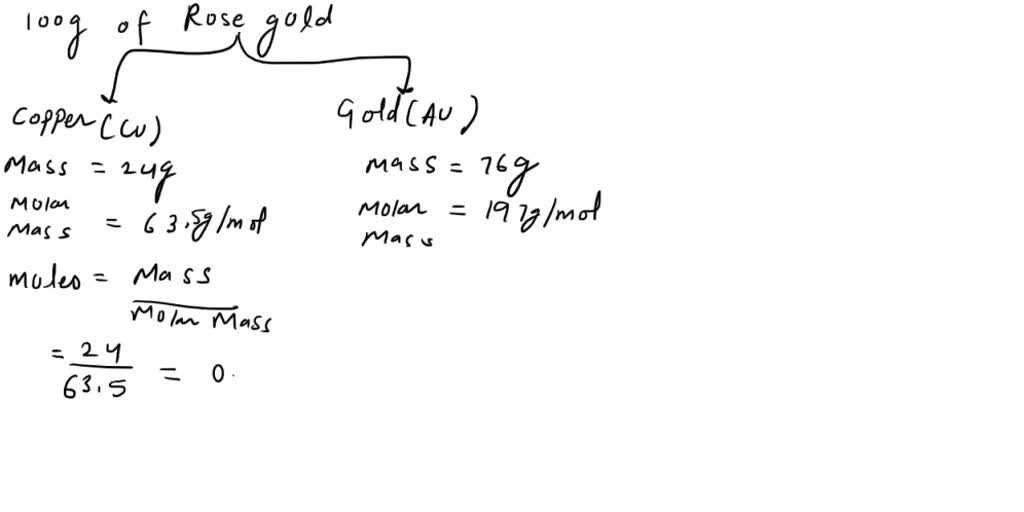 100g of Rose gold
Copper (Cu)
Mass = 24g
Molar Mass = 63.5g/mol
moles = Mass / Molar Mass
= 24 / 63.5 = 0.
Gold (Au)
Mass = 76g
Molar Mass = 197g/mol